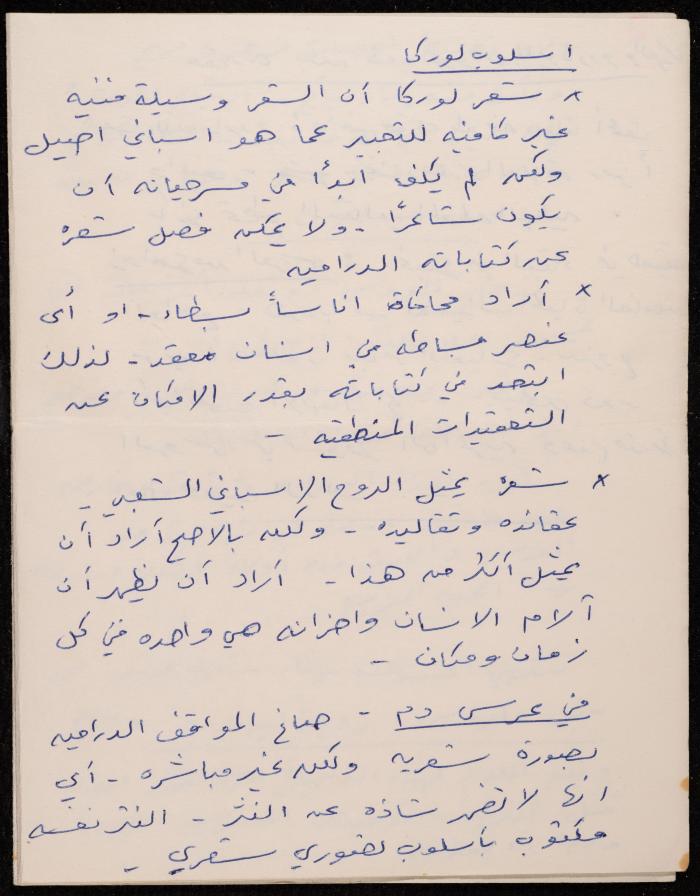 اسلوب لوركا
* شعر لوركا أن الشعر وسيلة فنيه
غير كافيه للتعبير عما هو اسباني اصيل
ولكنه لم يكف ابداً في مسرحياته أن
يكون شاعرًا - ولا يمكن فصل شعره
عن كتاباته الدراميه
* أراد محاكاة اناساً بسطاء - او أى
عنصر بساطه في انسان معقد - لذلك
ابتعد في كتاباته بقدر الامكان عن
التعقيدات المنطقيه -
* شعره يمثل الروح الاسباني الشعبي -
عقائده وتقاليده - ولكنه بالاصح أراد أن
يمثل أكثر من هذا - أراد أن يظهر أن
آلام الانسان واحزانه هي واحده في كل
زمان ومكان -
في عرس دم - صاغ المواقف الدراميه
بصورة شعريه ولكنه غير مباشره - أي
انها لا تظهر شاذه عن النثر - النثر نفسه
مكتوب بأسلوب تصويري شعري -